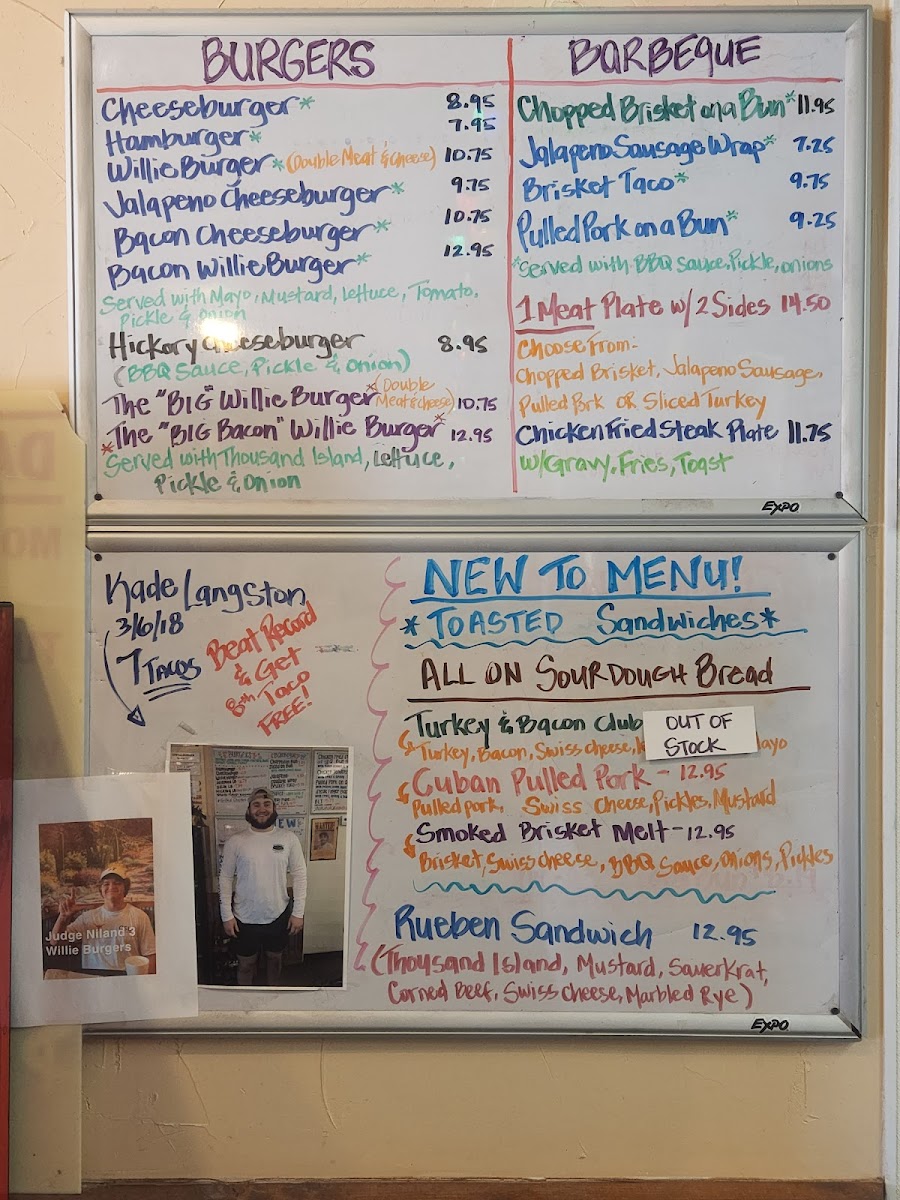 BURGERS
Cheeseburger* 8.95
Hamburger* 7.95
Willie Burger* (Double Meat & Cheese) 10.75
Jalapeno Cheeseburger* 9.75
Bacon Cheeseburger* 10.75
Bacon Willie Burger* 12.95
Served with Mayo, Mustard, Lettuce, Tomato,
Pickle & Onion
Hickory Cheeseburger 8.95
(BBQ Sauce, Pickle & Onion)
The "BIG" Willie Burger* (Double
Meat & Cheese) 10.75
*The "BIG Bacon" Willie Burger* 12.95
Served with Thousand Island, Lettuce,
Pickle & Onion
BARBEQUE
Chopped Brisket on a Bun* 11.95
Jalapeno Sausage Wrap* 7.25
Brisket Taco* 9.75
Pulled Pork on a Bun* 9.25
*Served with BBQ Sauce, Pickle, onions
1 Meat Plate w/ 2 Sides 14.50
Choose From:
Chopped Brisket, Jalapeno Sausage,
Pulled Pork OR Sliced Turkey
Chicken Fried Steak Plate 11.75
w/Gravy, Fries, Toast
EXPO
Kade Langston
3/6/18
7 Tacos
Beat Record
& Get
8th Taco
FREE!
Judge Niland 3
Willie Burgers
WANTED
NEW TO MENU!
*TOASTED Sandwiches*
ALL ON SOURDOUGH Bread
Turkey & Bacon Club
OUT OF
STOCK
Turkey, Bacon, Swiss cheese, Mayo
Cuban Pulled Pork - 12.95
Pulled pork, Swiss Cheese, Pickles, Mustard
Smoked Brisket Melt - 12.95
Brisket, Swiss cheese, BBQ Sauce, onions, Pickles
Rueben Sandwich 12.95
(Thousand Island, Mustard, Sauerkrat,
Corned Beef, Swiss Cheese, Marbled Rye)
EXPO